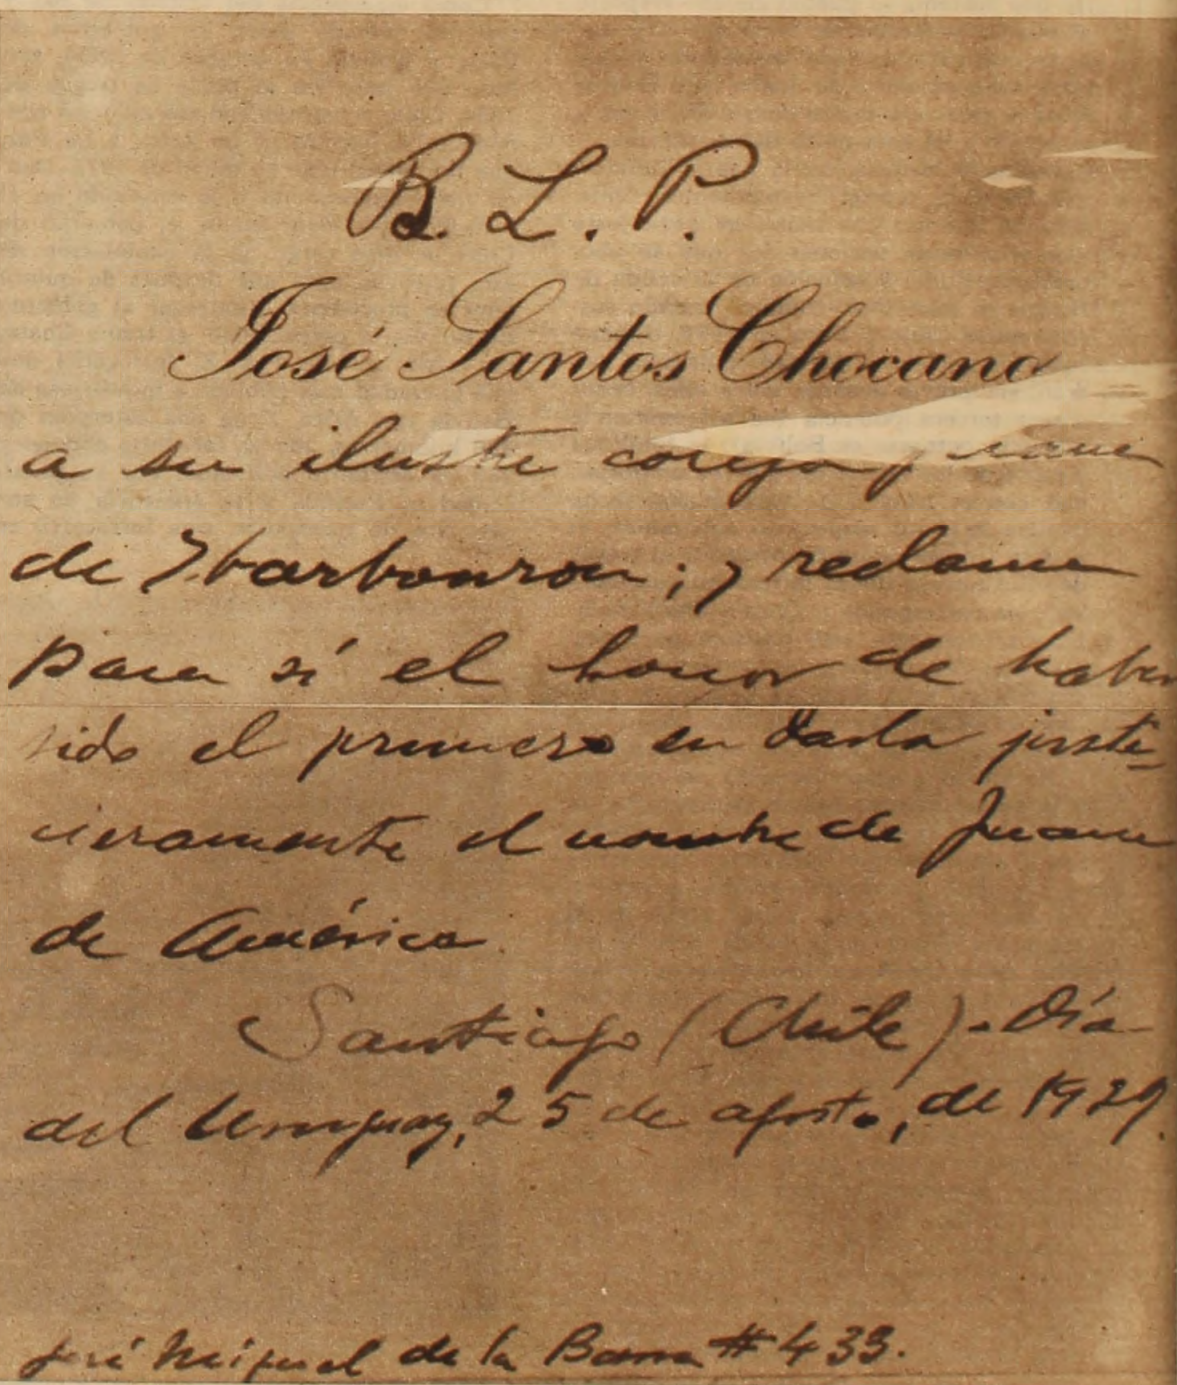 B. L. P.
José Santos Chocano
a su ilustre
de Ibarbourou; y reclama
para sí el honor de haber
sido el primero en darla justi-
cieramente el nombre de Juana
de América
Santiago (Chile). Día
del Uruguay, 25 de agosto, de 1929.
José Miguel de la Barra # 433.